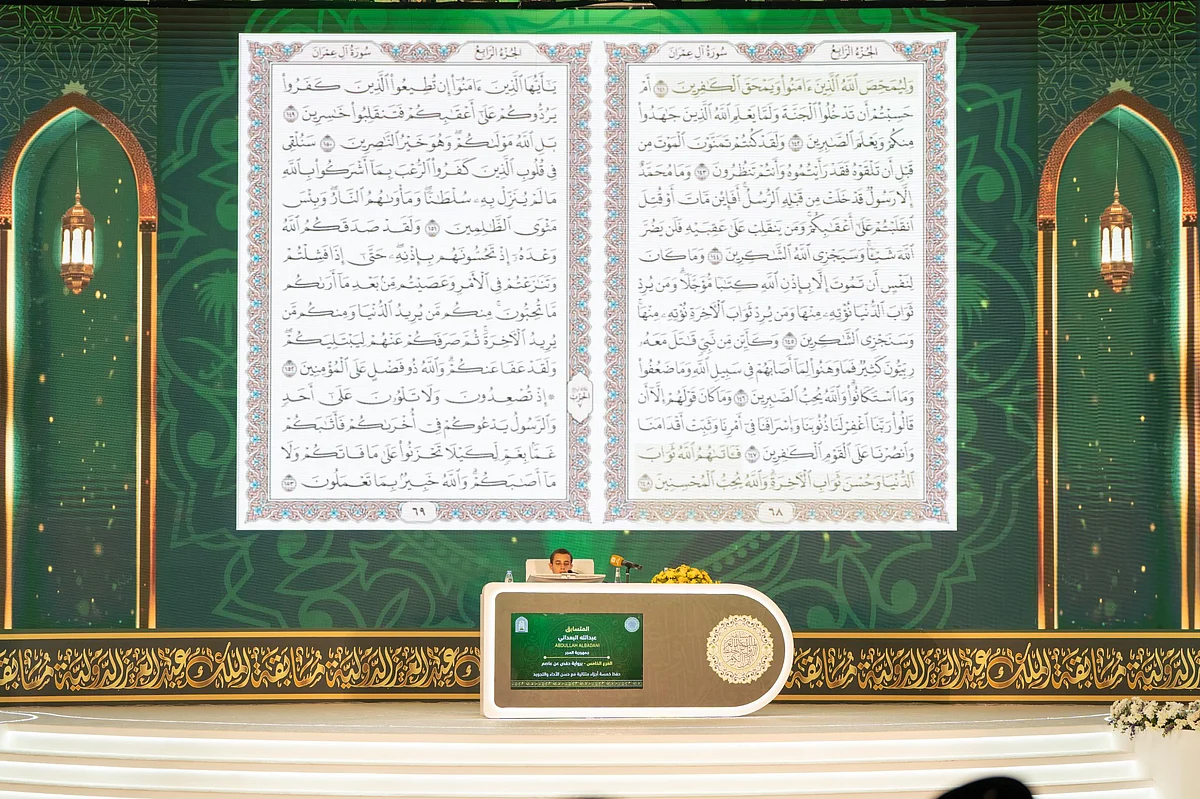 سُورَةُ آلِ عِمۡرَانَ الجُزۡءُ الرَّابِعُ
وَلِيُمَحِّصَ ٱللَّهُ ٱلَّذِينَ ءَامَنُواْ وَيَمۡحَقَ ٱلۡكَٰفِرِينَ ١٤١ أَمۡ
حَسِبۡتُمۡ أَن تَدۡخُلُواْ ٱلۡجَنَّةَ وَلَمَّا يَعۡلَمِ ٱللَّهُ ٱلَّذِينَ جَٰهَدُواْ
مِنكُمۡ وَيَعۡلَمَ ٱلصَّٰبِرِينَ ١٤٢ وَلَقَدۡ كُنتُمۡ تَمَنَّوۡنَ ٱلۡمَوۡتَ مِن
قَبۡلِ أَن تَلۡقَوۡهُ فَقَدۡ رَأَيۡتُمُوهُ وَأَنتُمۡ تَنظُرُونَ ١٤٣ وَمَا مُحَمَّدٌ
إِلَّا رَسُولٞ قَدۡ خَلَتۡ مِن قَبۡلِهِ ٱلرُّسُلُۚ أَفَإِيْن مَّاتَ أَوۡ قُتِلَ
ٱنقَلَبۡتُمۡ عَلَىٰٓ أَعۡقَٰبِكُمۡۚ وَمَن يَنقَلِبۡ عَلَىٰ عَقِبَيۡهِ فَلَن يَضُرَّ
ٱللَّهَ شَيۡـٔٗاۗ وَسَيَجۡزِي ٱللَّهُ ٱلشَّٰكِرِينَ ١٤٤ وَمَا كَانَ
لِنَفۡسٍ أَن تَمُوتَ إِلَّا بِإِذۡنِ ٱللَّهِ كِتَٰبٗا مُّؤَجَّلٗاۗ وَمَن يُرِدۡ
ثَوَابَ ٱلدُّنۡيَا نُؤۡتِهِۦ مِنۡهَا وَمَن يُرِدۡ ثَوَابَ ٱلۡأٓخِرَةِ نُؤۡتِهِۦ مِنۡهَاۚ
وَسَنَجۡزِي ٱلشَّٰكِرِينَ ١٤٥ وَكَأَيِّن مِّن نَّبِيّٖ قَٰتَلَ مَعَهُۥ
رِبِّيُّونَ كَثِيرٞ فَمَا وَهَنُواْ لِمَآ أَصَابَهُمۡ فِي سَبِيلِ ٱللَّهِ وَمَا ضَعُفُواْ
وَمَا ٱسۡتَكَانُواْۗ وَٱللَّهُ يُحِبُّ ٱلصَّٰبِرِينَ ١٤٦ وَمَا كَانَ قَوۡلَهُمۡ إِلَّآ أَن
قَالُواْ رَبَّنَا ٱغۡفِرۡ لَنَا ذُنُوبَنَا وَإِسۡرَافَنَا فِيٓ أَمۡرِنَا وَثَبِّتۡ أَقۡدَامَنَا
وَٱنصُرۡنَا عَلَى ٱلۡقَوۡمِ ٱلۡكَٰفِرِينَ ١٤٧ فَـَٔاتَىٰهُمُ ٱللَّهُ ثَوَابَ
ٱلدُّنۡيَا وَحُسۡنَ ثَوَابِ ٱلۡأٓخِرَةِۗ وَٱللَّهُ يُحِبُّ ٱلۡمُحۡسِنِينَ ١٤٨
٦٨
سُورَةُ آلِ عِمۡرَانَ الجُزۡءُ الرَّابِعُ
يَٰٓأَيُّهَا ٱلَّذِينَ ءَامَنُوٓاْ إِن تُطِيعُواْ ٱلَّذِينَ كَفَرُواْ
يَرُدُّوكُمۡ عَلَىٰٓ أَعۡقَٰبِكُمۡ فَتَنقَلِبُواْ خَٰسِرِينَ ١٤٩
بَلِ ٱللَّهُ مَوۡلَىٰكُمۡۖ وَهُوَ خَيۡرُ ٱلنَّٰصِرِينَ ١٥٠ سَنُلۡقِي
فِي قُلُوبِ ٱلَّذِينَ كَفَرُواْ ٱلرُّعۡبَ بِمَآ أَشۡرَكُواْ بِٱللَّهِ
مَا لَمۡ يُنَزِّلۡ بِهِۦ سُلۡطَٰنٗاۖ وَمَأۡوَىٰهُمُ ٱلنَّارُۖ وَبِئۡسَ
مَثۡوَى ٱلظَّٰلِمِينَ ١٥١ وَلَقَدۡ صَدَقَكُمُ ٱللَّهُ
وَعۡدَهُۥٓ إِذۡ تَحُسُّونَهُم بِإِذۡنِهِۦۖ حَتَّىٰٓ إِذَا فَشِلۡتُمۡ
وَتَنَٰزَعۡتُمۡ فِي ٱلۡأَمۡرِ وَعَصَيۡتُم مِّنۢ بَعۡدِ مَآ أَرَىٰكُم
مَّا تُحِبُّونَۚ مِنكُم مَّن يُرِيدُ ٱلدُّنۡيَا وَمِنكُم مَّن
يُرِيدُ ٱلۡأٓخِرَةَۚ ثُمَّ صَرَفَكُمۡ عَنۡهُمۡ لِيَبۡتَلِيَكُمۡۖ
وَلَقَدۡ عَفَا عَنكُمۡۗ وَٱللَّهُ ذُو فَضۡلٍ عَلَى ٱلۡمُؤۡمِنِينَ ١٥٢
۞ إِذۡ تُصۡعِدُونَ وَلَا تَلۡوُۥنَ عَلَىٰٓ أَحَدٖ
وَٱلرَّسُولُ يَدۡعُوكُمۡ فِيٓ أُخۡرَىٰكُمۡ فَأَثَٰبَكُمۡ
غَمَّۢا بِغَمّٖ لِّكَيۡلَا تَحۡزَنُواْ عَلَىٰ مَا فَاتَكُمۡ وَلَا
مَآ أَصَٰبَكُمۡۗ وَٱللَّهُ خَبِيرُۢ بِمَا تَعۡمَلُونَ ١٥٣
٦٩
المتسابق
عبدالله البعداني
ABDULLAH ALBADANI
جمهورية المجر
الفرع الخامس - برواية حفص عن عاصم
حفظ خمسة أجزاء متتالية مع حسن الأداء والتجويد
مسابقة الملك عبدالعزيز الدولية مسابقة الملك
عبدالعزيز الدولية مسابقة الملك عبدالعزيز الدولية مسابقة